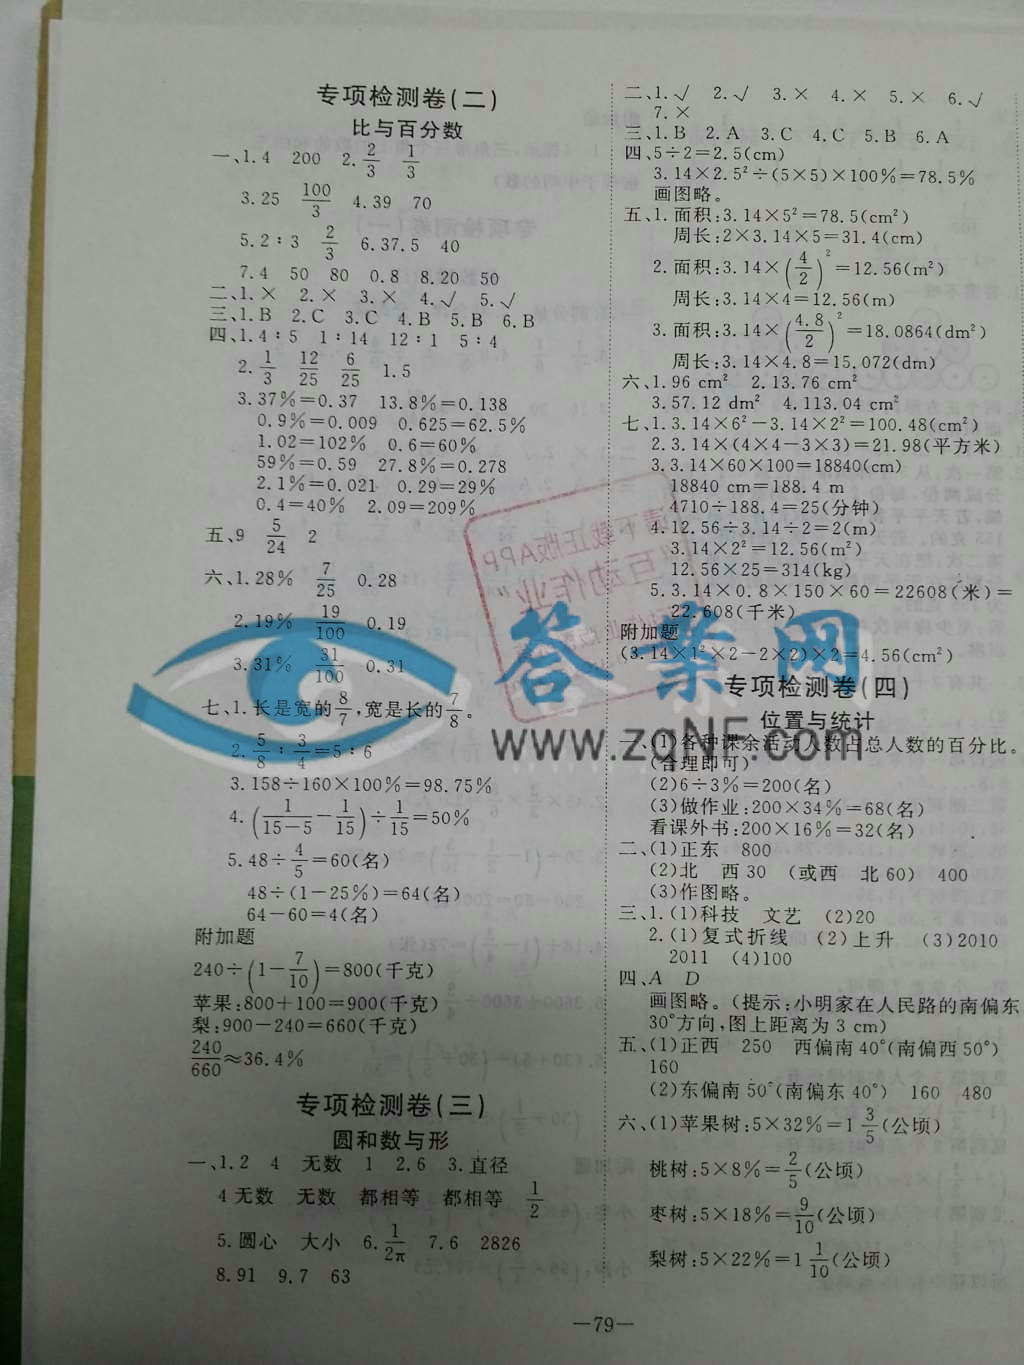 专项检测卷(二)
比与百分数
一、1.4 200 2.2/3 1/3
3.25 100/3 4.39 70
5.2∶3 2/3 6.37.5 40
7.4 50 80 0.8 8.20 50
二、1.× 2.× 3.× 4.√ 5.√
三、1.B 2.C 3.C 4.B 5.B 6.B
四、1.4∶5 1∶14 12∶1 5∶4
2.1/3 12/25 6/25 1.5
3.37%=0.37 13.8%=0.138
0.9%=0.009 0.625=62.5%
1.02=102% 0.6=60%
59%=0.59 27.8%=0.278
2.1%=0.021 0.29=29%
0.4=40% 2.09=209%
五、9 5/24 2
六、1.28% 7/25 0.28
2.19% 19/100 0.19
3.31% 31/100 0.31
七、1.长是宽的8/7,宽是长的7/8。
2.5/8∶3/4=5∶6
3.158÷160×100%=98.75%
4.(1/(15-5)-1/15)÷1/15=50%
5.48÷4/5=60(名)
48÷(1-25%)=64(名)
64-60=4(名)
附加题
240÷(1-7/10)=800(千克)
苹果:800+100=900(千克)
梨:900-240=660(千克)
240/660≈36.4%
专项检测卷(三)
圆和数与形
一、1.2 4 无数 1 2.6 3.直径
4无数 无数 都相等 都相等 1/2
5.圆心 大小 6.1/2π 7.6 2826
8.91 9.7 63
二、1.√ 2.√ 3.× 4.× 5.× 6.√
7.×
三、1.B 2.A 3.C 4.C 5.B 6.A
四、5÷2=2.5(cm)
3.14×2.5²÷(5×5)×100%=78.5%
画图略。
五、1.面积:3.14×5²=78.5(cm²)
周长:2×3.14×5=31.4(cm)
2.面积:3.14×(4/2)²=12.56(m²)
周长:3.14×4=12.56(m)
3.面积:3.14×(4.8/2)²=18.0864(dm²)
周长:3.14×4.8=15.072(dm)
六、1.96 cm² 2.13.76 cm²
3.57.12 dm² 4.113.04 cm²
七、1.3.14×6²-3.14×2²=100.48(cm²)
2.3.14×(4×4-3×3)=21.98(平方米)
3.3.14×60×100=18840(cm)
18840 cm=188.4 m
4710÷188.4=25(分钟)
4.12.56÷3.14÷2=2(m)
3.14×2²=12.56(m²)
12.56×25=314(kg)
5.3.14×0.8×150×60=22608(米)=
22.608(千米)
附加题
(3.14×1²×2-2×2)×2=4.56(cm²)
专项检测卷(四)
位置与统计
一、(1)各种课余活动人数占总人数的百分比。
(合理即可)
(2)6÷3%=200(名)
(3)做作业:200×34%=68(名)
看课外书:200×16%=32(名)
二、(1)正东 800
(2)北 西30 (或西 北60) 400
(3)作图略。
三、1.(1)科技 文艺 (2)20
2.(1)复式折线 (2)上升 (3)2010
2011 (4)100
四、A D
画图略。(提示:小明家在人民路的南偏东
30°方向,图上距离为3 cm)
五、(1)正西 250 西偏南40°(南偏西50°)
160
(2)东偏南50°(南偏东40°) 160 480
六、(1)苹果树:5×32%=1 3/5(公顷)
桃树:5×8%=2/5(公顷)
枣树:5×18%=9/10(公顷)
梨树:5×22%=1 1/10(公顷)
—79—
请下载正版APP
互动作业
答案网
www.zqNF.com